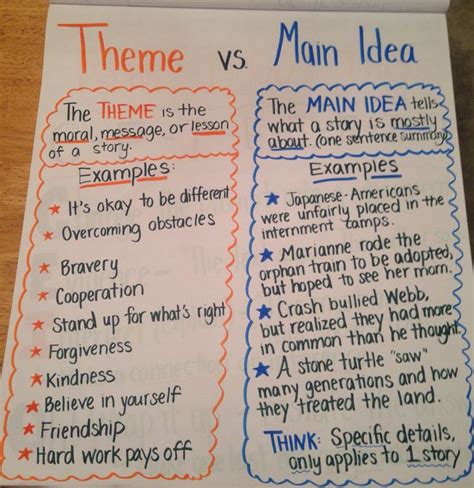 Theme vs. Main Idea
The THEME is the
moral, message, or lesson
of a story.
Examples:
★ It's okay to be different
★ Overcoming obstacles
★ Bravery
★ Cooperation
★ Stand up for what's right
★ Forgiveness
★ Kindness
★ Believe in yourself
★ Friendship
★ Hard work pays off
The MAIN IDEA tells
what a story is mostly
about. (one sentence summary)
Examples
★ Japanese-Americans
were unfairly placed in the
internment camps.
★ Marianne rode the
orphan train to be adopted,
but hoped to see her mom.
★ Crash bullied Webb,
but realized they had more
in common than he thought.
★ A stone turtle "saw"
many generations and how
they treated the land.
THINK: Specific details,
only applies to 1 story